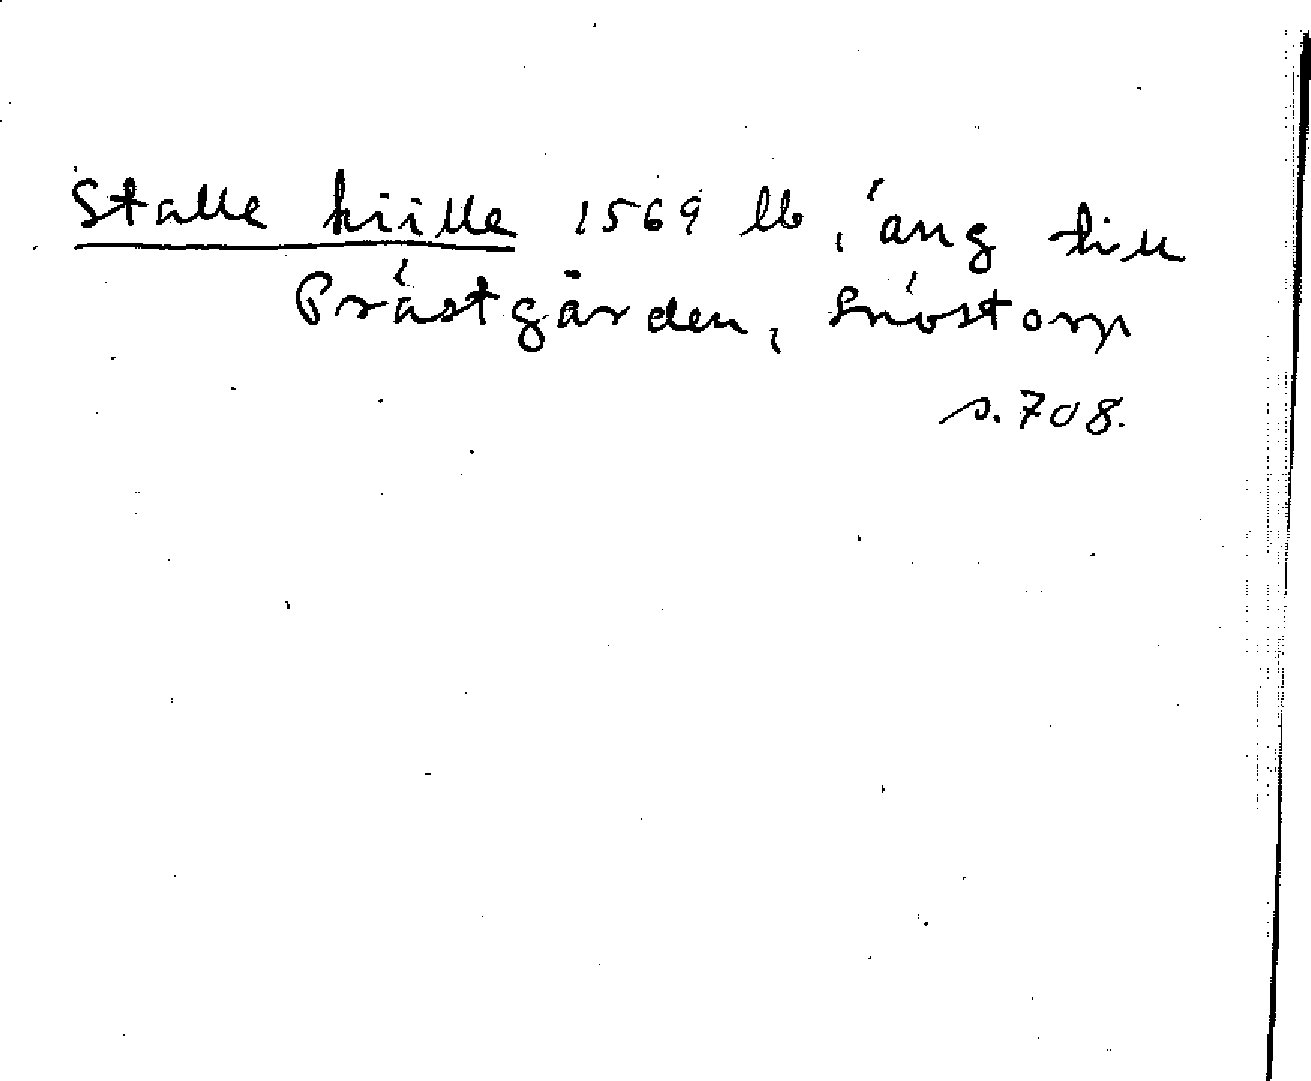 Stalle kiille 1569 lb, äng till
Prästgården, Snöstorp
s. 708.